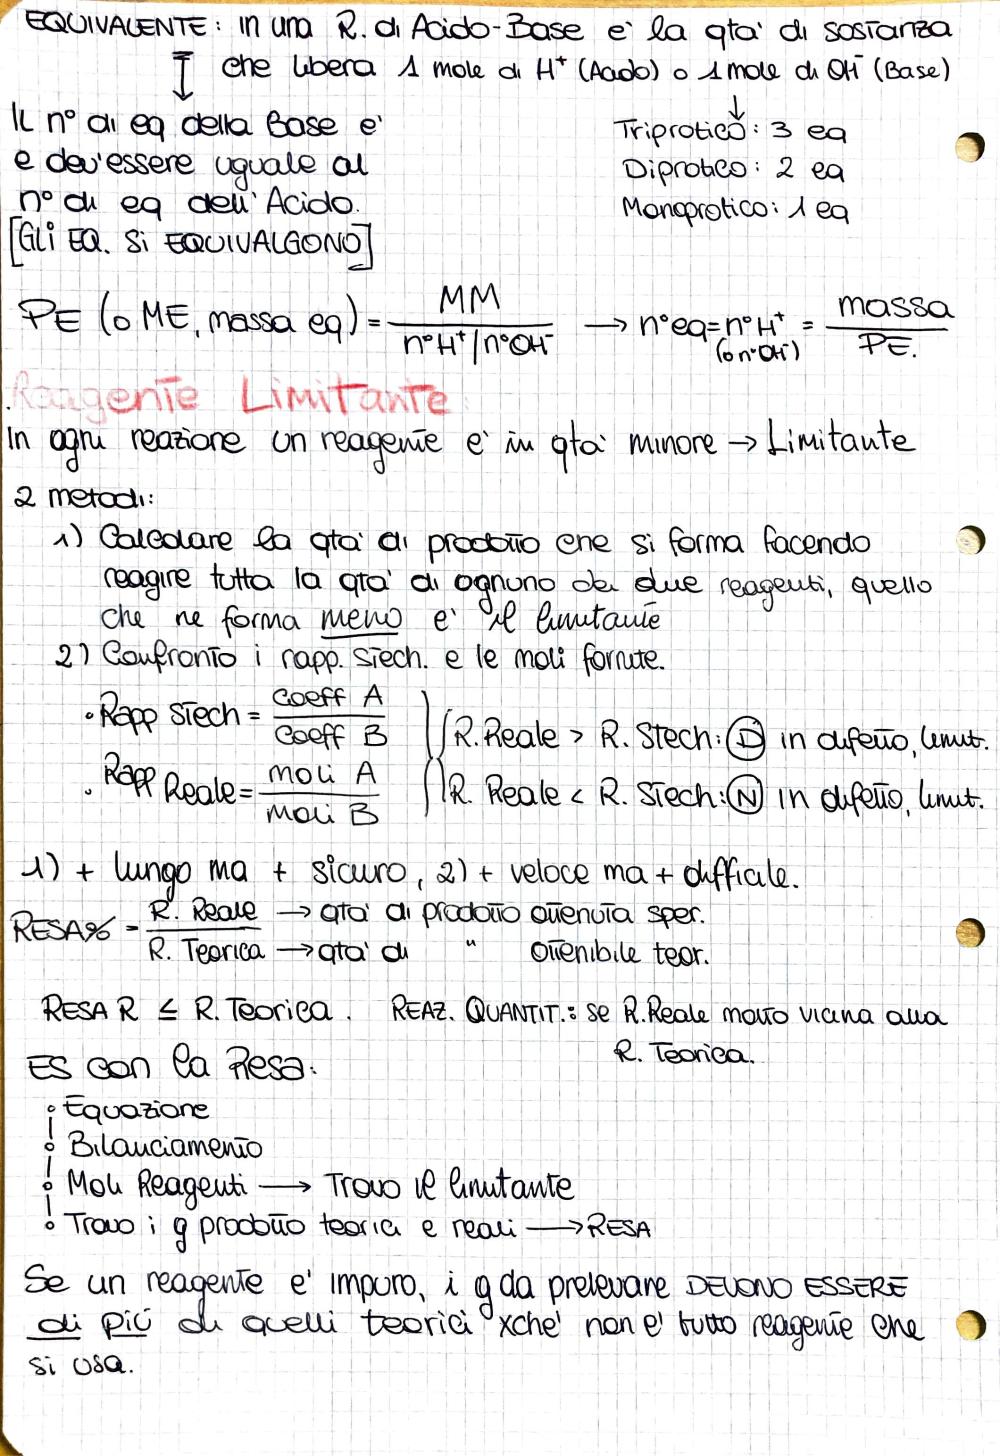 EQUIVALENTE: in una R. di Acido-Base e' la qta' di sostanza
che libera 1 mole di H⁺ (Acido) o 1 mole di OH⁻ (Base)
↕
↓
Il n° di eq della Base e'
e dev'essere uguale al
n° di eq dell'Acido.
[GLI EQ. Si EQUIVALGONO]
Triprotico: 3 eq
Diprotico: 2 eq
Monoprotico: 1 eq
PE (o ME, massa eq) = MM / n°H⁺/n°OH⁻ → n°eq = n°H⁺ (o n°OH⁻) = massa / PE.
Reagente Limitante
In ogni reazione un reagente e' in qta' minore → Limitante
2 metodi:
1) Calcolare la qta' di prodotto che si forma facendo
reagire tutta la qta' di ognuno dei due reagenti, quello
che ne forma meno e' il limitante
2) Confronto i rapp. stech. e le moli fornite.
• Rapp Stech = Coeff A / Coeff B
• Rapp Reale = moli A / moli B
R. Reale > R. Stech: D in difetto, limit.
R. Reale < R. Stech: N in difetto, limit.
1) + lungo ma + sicuro, 2) + veloce ma + difficile.
RESA% = R. Reale → qta' di prodotto ottenuta sper.
R. Teorica → qta' di " ottenibile teor.
RESA R ≤ R. Teorica. REAZ. QUANTIT.: se R. Reale molto vicina alla
R. Teorica.
ES con la Resa:
Equazione
Bilanciamento
Moli Reagenti → Trovo il limitante
Trovo i g prodotto teorici e reali → RESA
Se un reagente e' impuro, i g da prelevare DEVONO ESSERE
di più di quelli teorici xche' non e' tutto reagente che
si usa.